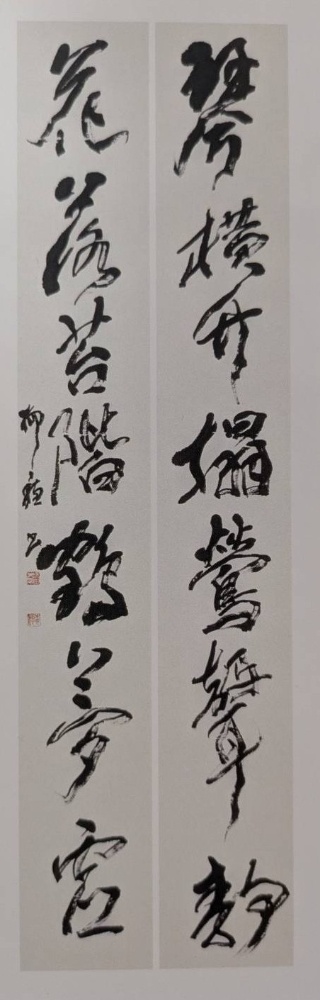 琴橫竹榻鶯聲靜
花落苔階鶴夢虛
柳